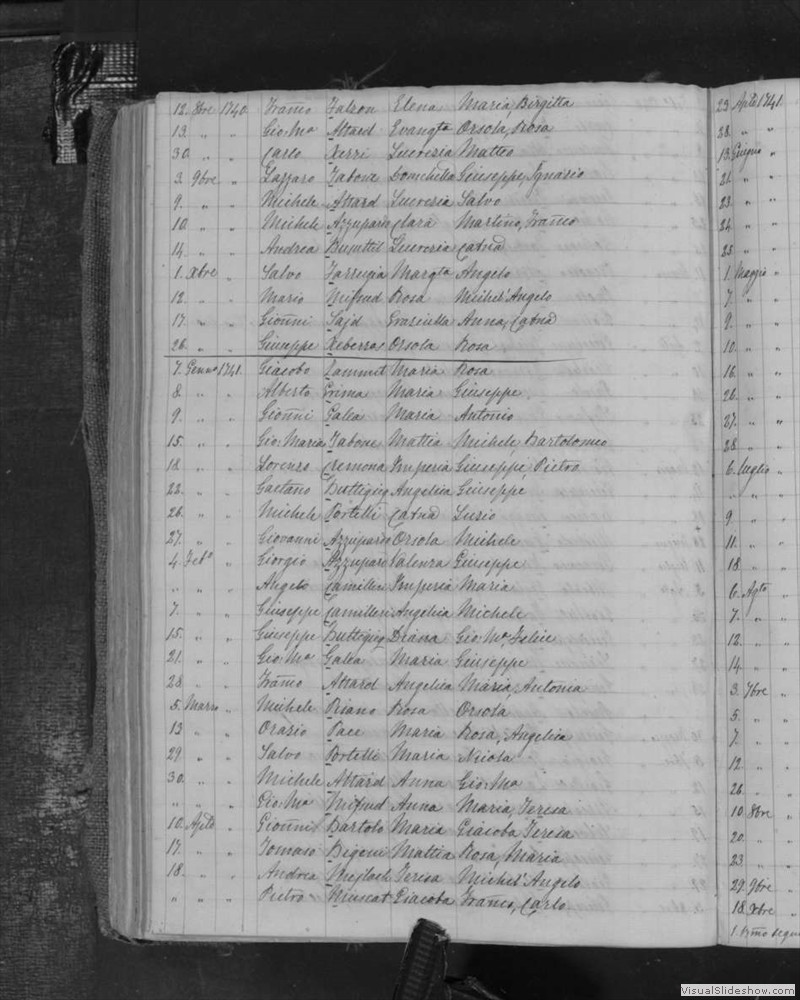 12. 8bre 1740. Franco Falzon Elena Maria, Birgitta
13. " " Gio. Ma Attard Evangta Orsola, Rosa
30. " " Carlo Xerri Lucresia Matteo
3. 9bre " Lazzaro Tabone Domchella Giuseppe, Ignazio
9. " " Michele Attard Lucresia Salvo
10. " " Michele Azzupardo Clara Martino, Franco
14. " " Andrea Busuttil Lucresia Catna
1. Xbre " Salvo Farrugia Margta Angelo
12. " " Mario Mifsud Rosa Michel'Angelo
17. " " Gionni Sajd Graziulla Anna, Catna
26. " " Giuseppe Xeberras Orsola Rosa
7. Genno 1741. Giacobo Zammit Maria Rosa
8. " " Alberto Grima Maria Giuseppe.
9. " " Gionni Galea Maria Antonio
15. " " Gio: Maria Tabone Mattia Michele, Bartolomeo
18. " " Lorenzo Cremona Imperia Giuseppe, Pietro
22. " " Gaetano Buttigieg Angelica Giuseppe
26. " " Michele Portelli Catna Luzio
27. " " Giovanni Azzupardo Orsola Michele
4. Febo " Giorgio Azzupardo Valenza Giuseppe
" " " Angelo Camilleri Imperia Maria
7. " " Giuseppe Camilleri Angelica Michele
15. " " Giuseppe Buttigieg Gio: Ma, Felice
21. " " Gio: Ma Galea Maria Giuseppe
28. " " Franco Attard Angelica Maria, Antonia
5. Marzo " Michele Piano Rosa Orsola
13 " " Orazio Pace Maria Rosa, Angelica
29 " " Salvo Portelli Maria Nicola
30. " " Michele Attard Anna Gio: Ma
" " " Gio: Ma Mifsud Anna Maria, Teresa
10. Aple " Gionni Bartolo Maria Giacoba, Teresa
17. " " Tomaso Bigeni Mattia Rosa, Maria
18. " " Andrea Mejlach Teresa Michel'Angelo
" " " Pietro Muscat Giacoba Franco, Carlo
23 Aple 1741.
28. " "
13. Giugno "
21. " "
23. " "
24. " "
25. " "
1. Maggio "
7. " "
9. " "
10. " "
16. " "
26. " "
27. " "
28 " "
6. Luglio "
" " "
9. " "
11. " "
18. " "
6. Agto "
7. " "
12. " "
14. " "
3. 7bre "
5. " "
7. " "
12 " "
26. " "
10. 8bre "
20. " "
23 " "
29. 9bre "
18. Xbre "
VisualSlideshow.com